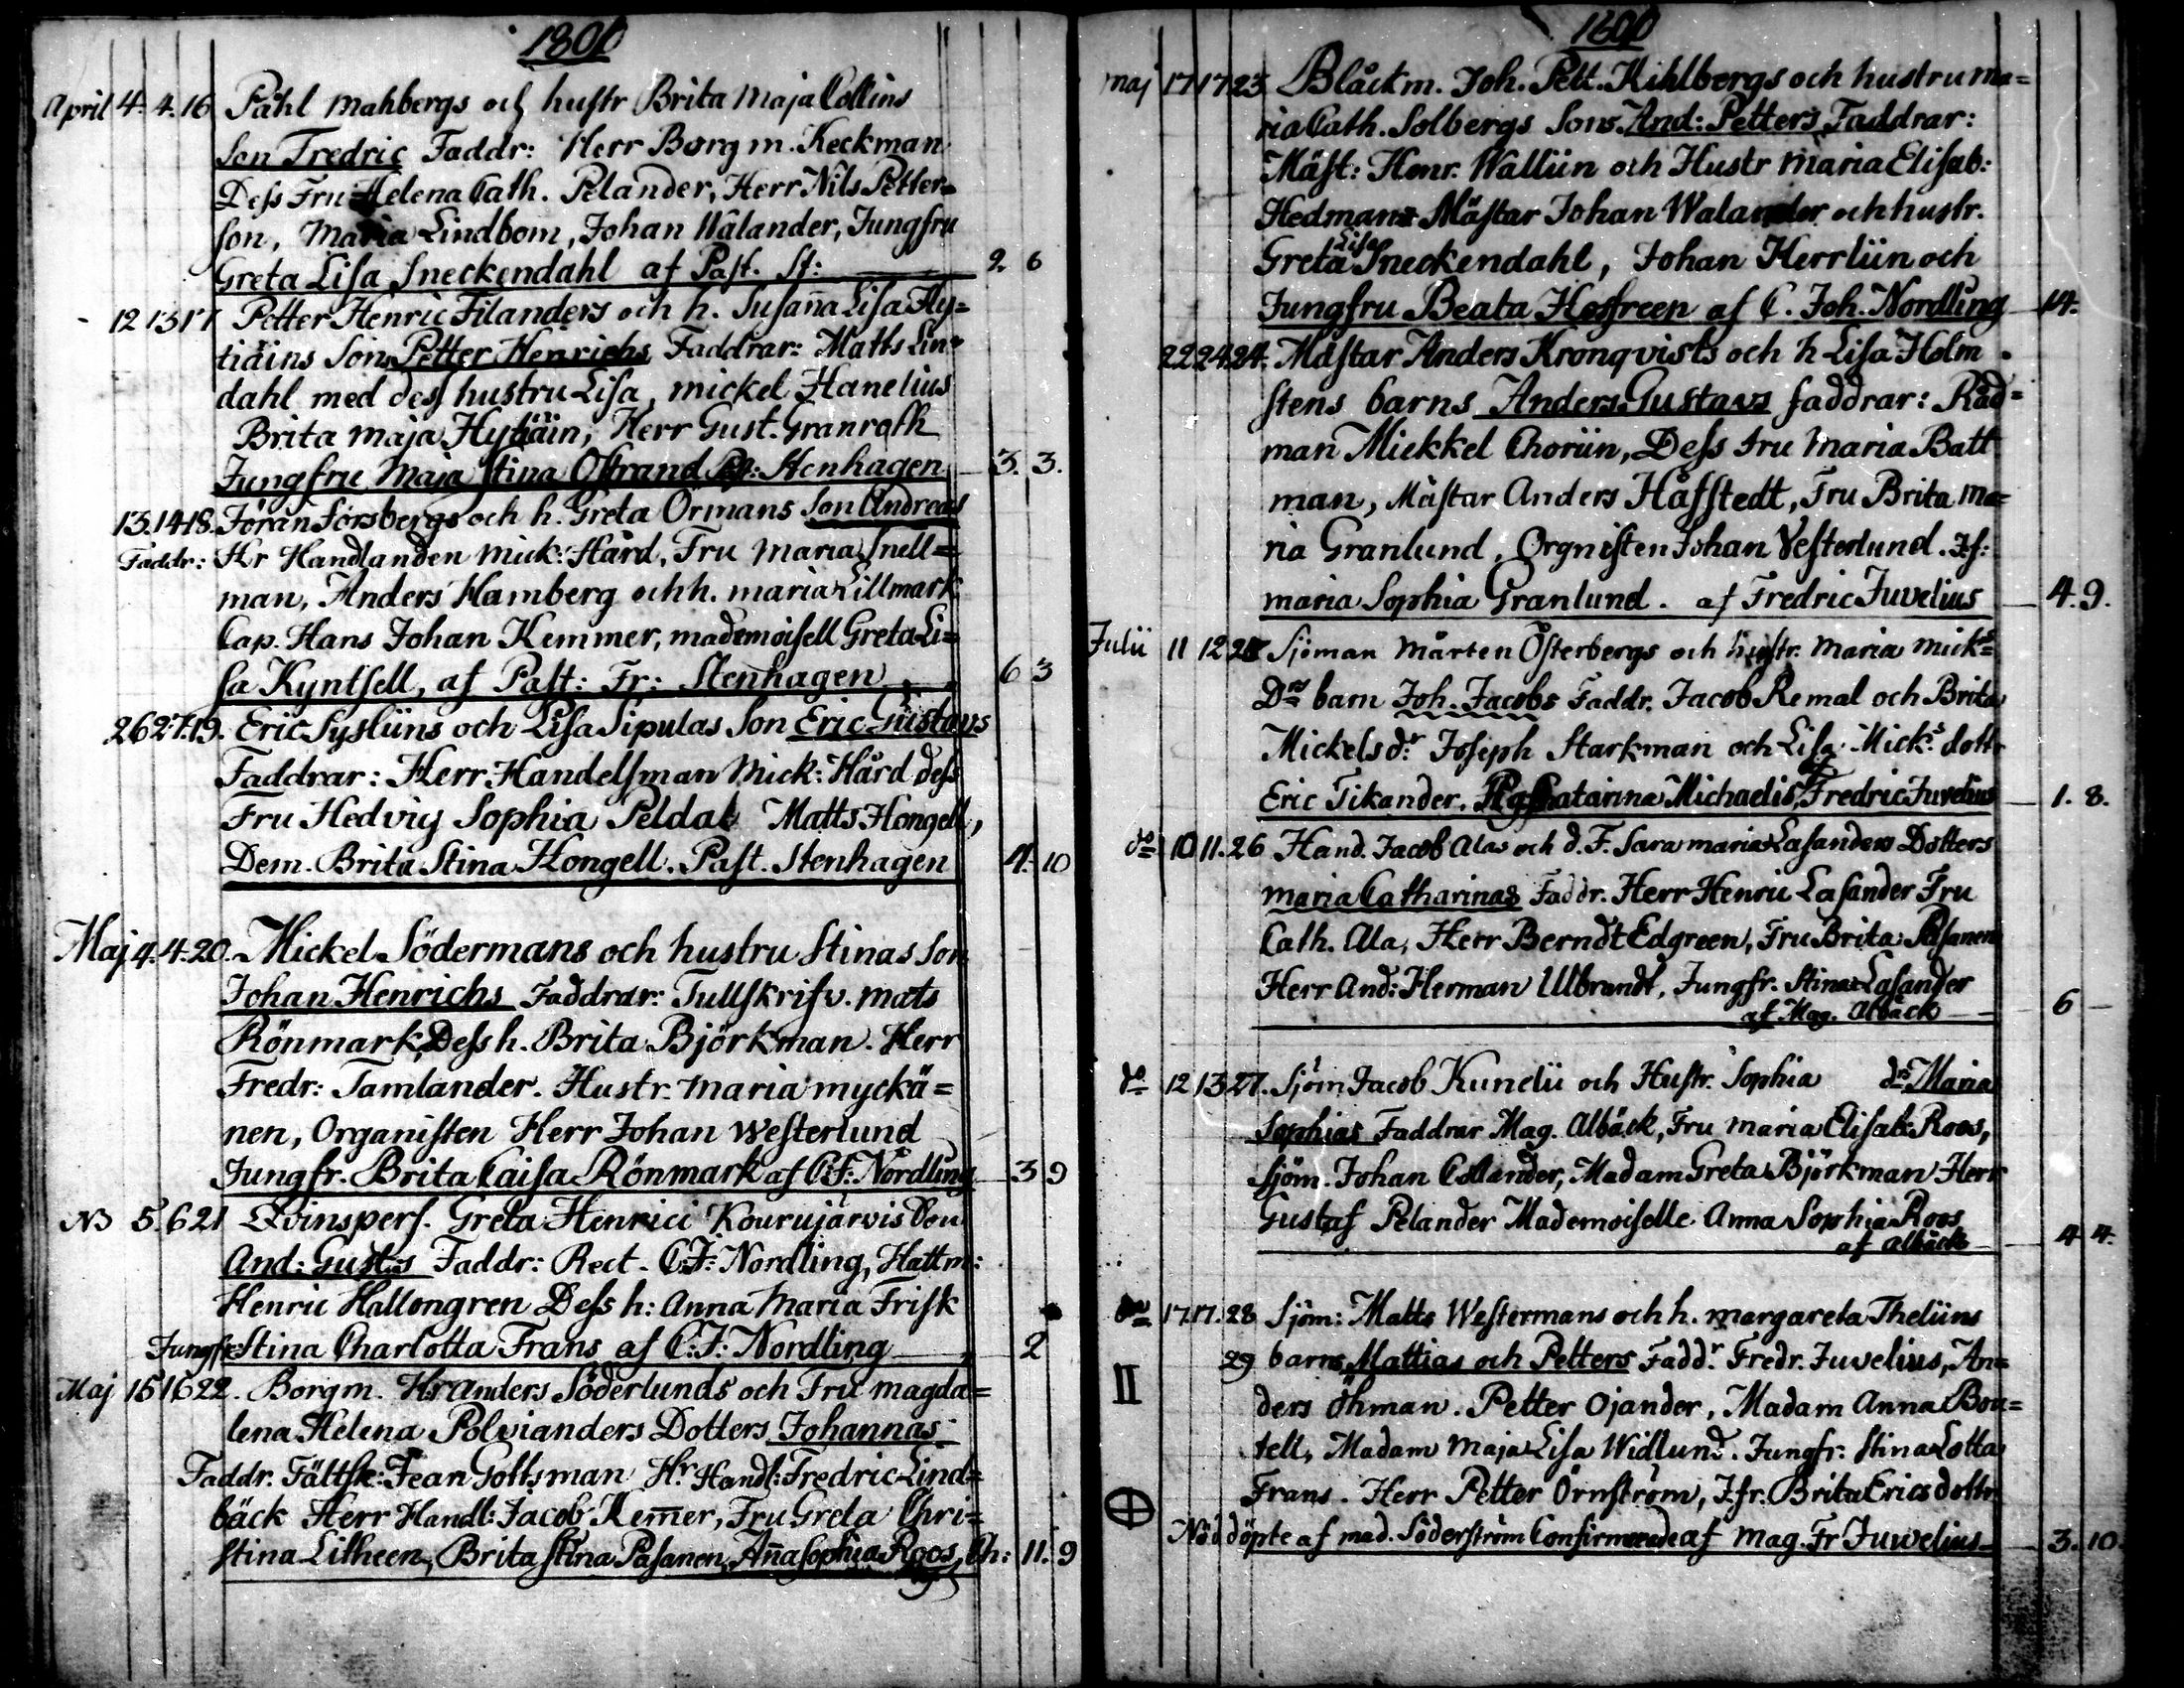 1800
April 4. 4. 16 Påhl Mahbergs och hustr Brita Maja Collins
Son Fredric Faddr: Herr Borgm. Keckman
Dess Fru Helena Cath. Pelander, Herr Nils Petter-
son, Maria Lindbom, Johan Wålander, Jungfru
Greta Lisa Sneckendahl af Past. St: 2 6
12 13 17 Petter Henric Filanders och h. Susana Lisa Hy=
tiäins Son Petter Henrichs Faddrar: Matts Lin=
dahl med dess hustru Lisa, mickel Hanelius
Brita maja Hytiäin, Herr Gust. Granroth
Jungfru Maja Stina Ostrand Stenhagen 3. 3.
13. 14 18. Jöran Forsbergs och h. Greta Örmans Son Andreas
Faddr: Hr Handlanden Mick: Hård, Fru Maria Snell=
man, Anders Hamberg och h. maria Lillmark
Cap. Hans Johan Kemmer, mademoisell Greta Li=
sa Kyntsell, af Past: Fr: Stenhagen 6 3
26 27. 19. Eric Sysliins och Lisa Sipulas Son Eric Gustavs
Faddrar: Herr Handelsman Mick: Hård dess
Fru Hedvig Sophia Peldal Matts Hongell,
Dem. Brita Stina Hongell. Past. Stenhagen 4. 10
Maj 4. 4. 20. Mickel Södermans och hustru Stinas Son
Johan Henrichs Faddrar: Tullskrifv. mats
Rönmark, Dess h. Brita Björkman. Herr
Fredr: Tamlander. Hustr. Maria myckä=
nen, Organisten Herr Johan Westerlund
Jungfr. Brita Caisa Rönmark af C. F. Nordling 3 9
NB 5. 6 21 Qvinspers. Greta Henrici Kourujärvis Son
And: Gustvs Faddr: Rect. C: F: Nordling, Hattm:
Henric Hallongren Dess h: Anna Maria Frisk
Jungfr Stina Charlotta Frans af C: F: Nordling 2
Maj 15 16 22. Borgm. Hr Anders Söderlunds och Fru magda=
lena Helena Polvianders Dotters Johannas
Faddr. Fältsk: Jean Gottsman Hr Handl: Fredric Lind=
bäck Herr Handl: Jacob Kemer, Fru Greta Chri=
stina Litheen, Brita Stina Pasanen, Aña Sophia Roos, 11. 9
1800
Maj 17 17 23 Blåckm. Joh. Pett. Kihlbergs och hustru ma=
ria Cath. Solbergs Sons And: Petters Faddrar:
Mäst: Henr. Walliin och Hustr Maria Elisab:
Hedmans Mästar Johan Walander och hustr.
Greta Lisa Sneckendahl, Johan Herrliin och
Jungfru Beata Hoffreen af C. Joh. Nordling 14.
22. 24. 24. Mästar Anders Kronqvists och h Lisa Holm
stens barns Anders Gustavs faddrar: Råd=
man Mickkel Choriin, Dess Fru Maria Batt
man, Mästar Anders Håfstedt, Fru Brita Ma=
ria Granlund, Orgnisten Johan Vesterlund. Jf:
maria Sophia Granlund. af Fredric Juvelius 4. 9.
Julii 11 12 25 Sjöman Mårten Österbergs och hustr. Maria Mick=
Drs barn Joh. Jacobs Faddr. Jacob Remal och Brita
Mickelsdr Joseph Starkman och Lisa Micks dottr
Eric Tikander, Catarina Michaelis, af Fredric Juvelius 1. 8.
do 10 11. 26 Hand. Jacob Alas och d. F. Sara maria Lasanders Dotters
maria Catharinas Faddr. Herr Henric Lasander Fru
Cath. Ala, Herr Berndt Edgreen, Fru Brita Pasanen
Herr And: Herman Ulbrandt, Jungfr. Stina Lasander
af Mag. Alback 6
do 12 13 27. Sjöm Jacob Kunelii och Hustr. Sophia drs Maria
Sophias Faddrar Mag. Albäck, Fru Maria Elisab: Roos,
Sjöm. Johan Collander, Madam Greta Björkman Herr
Gustaf Pelander Mademoiselle Anna Sophia Roos
af Albäck 4 4.
do 17. 17. 28 Sjöm: Matts Westermans och h. margareta Theliins
29 barns Mattias och Petters Faddr Fredr. Juvelius, An=
II
ders Öhman. Petter Ojander, Madam Anna Bou=
tell, Madam Maja Lisa Widlund. Jungfr: Stina Lotta
Frans. Herr Petter Örnström, J:fr. Brita Erics dottr
Nöd döpte af mad. Söderström Confirmerade af mag. Fr Juwelius 3. 10.